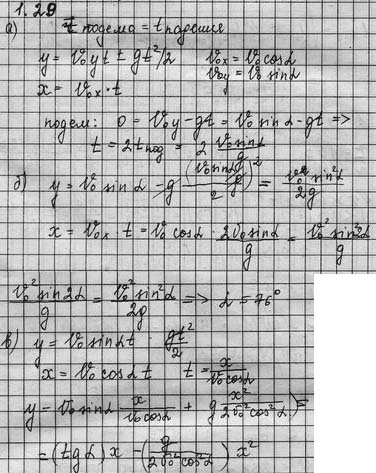 1.29
а) t подема = t падения
y = v₀y t ± gt²/2 v₀x = v₀ cosα
v₀y = v₀ sinα
x = v₀x · t
подем: 0 = v₀y - gt = v₀ sinα - gt =>
t = 2t под = 2 v₀ sinα / g
б) y = v₀ sinα - g (v₀ sinα / g)² / 2 = v₀² sin²α / 2g
x = v₀x · t = v₀ cosα · 2v₀ sinα / g = v₀² sin2α / g
v₀² sin2α / g = v₀² sin²α / 2g => α = 76°
в) y = v₀ sinα t gt²/2
x = v₀ cosα t t = x / v₀ cosα
y = v₀ sinα x / v₀ cosα + g x² / 2v₀² cos²α =
= (tgα) x - (g / 2v₀² cos²α) x²